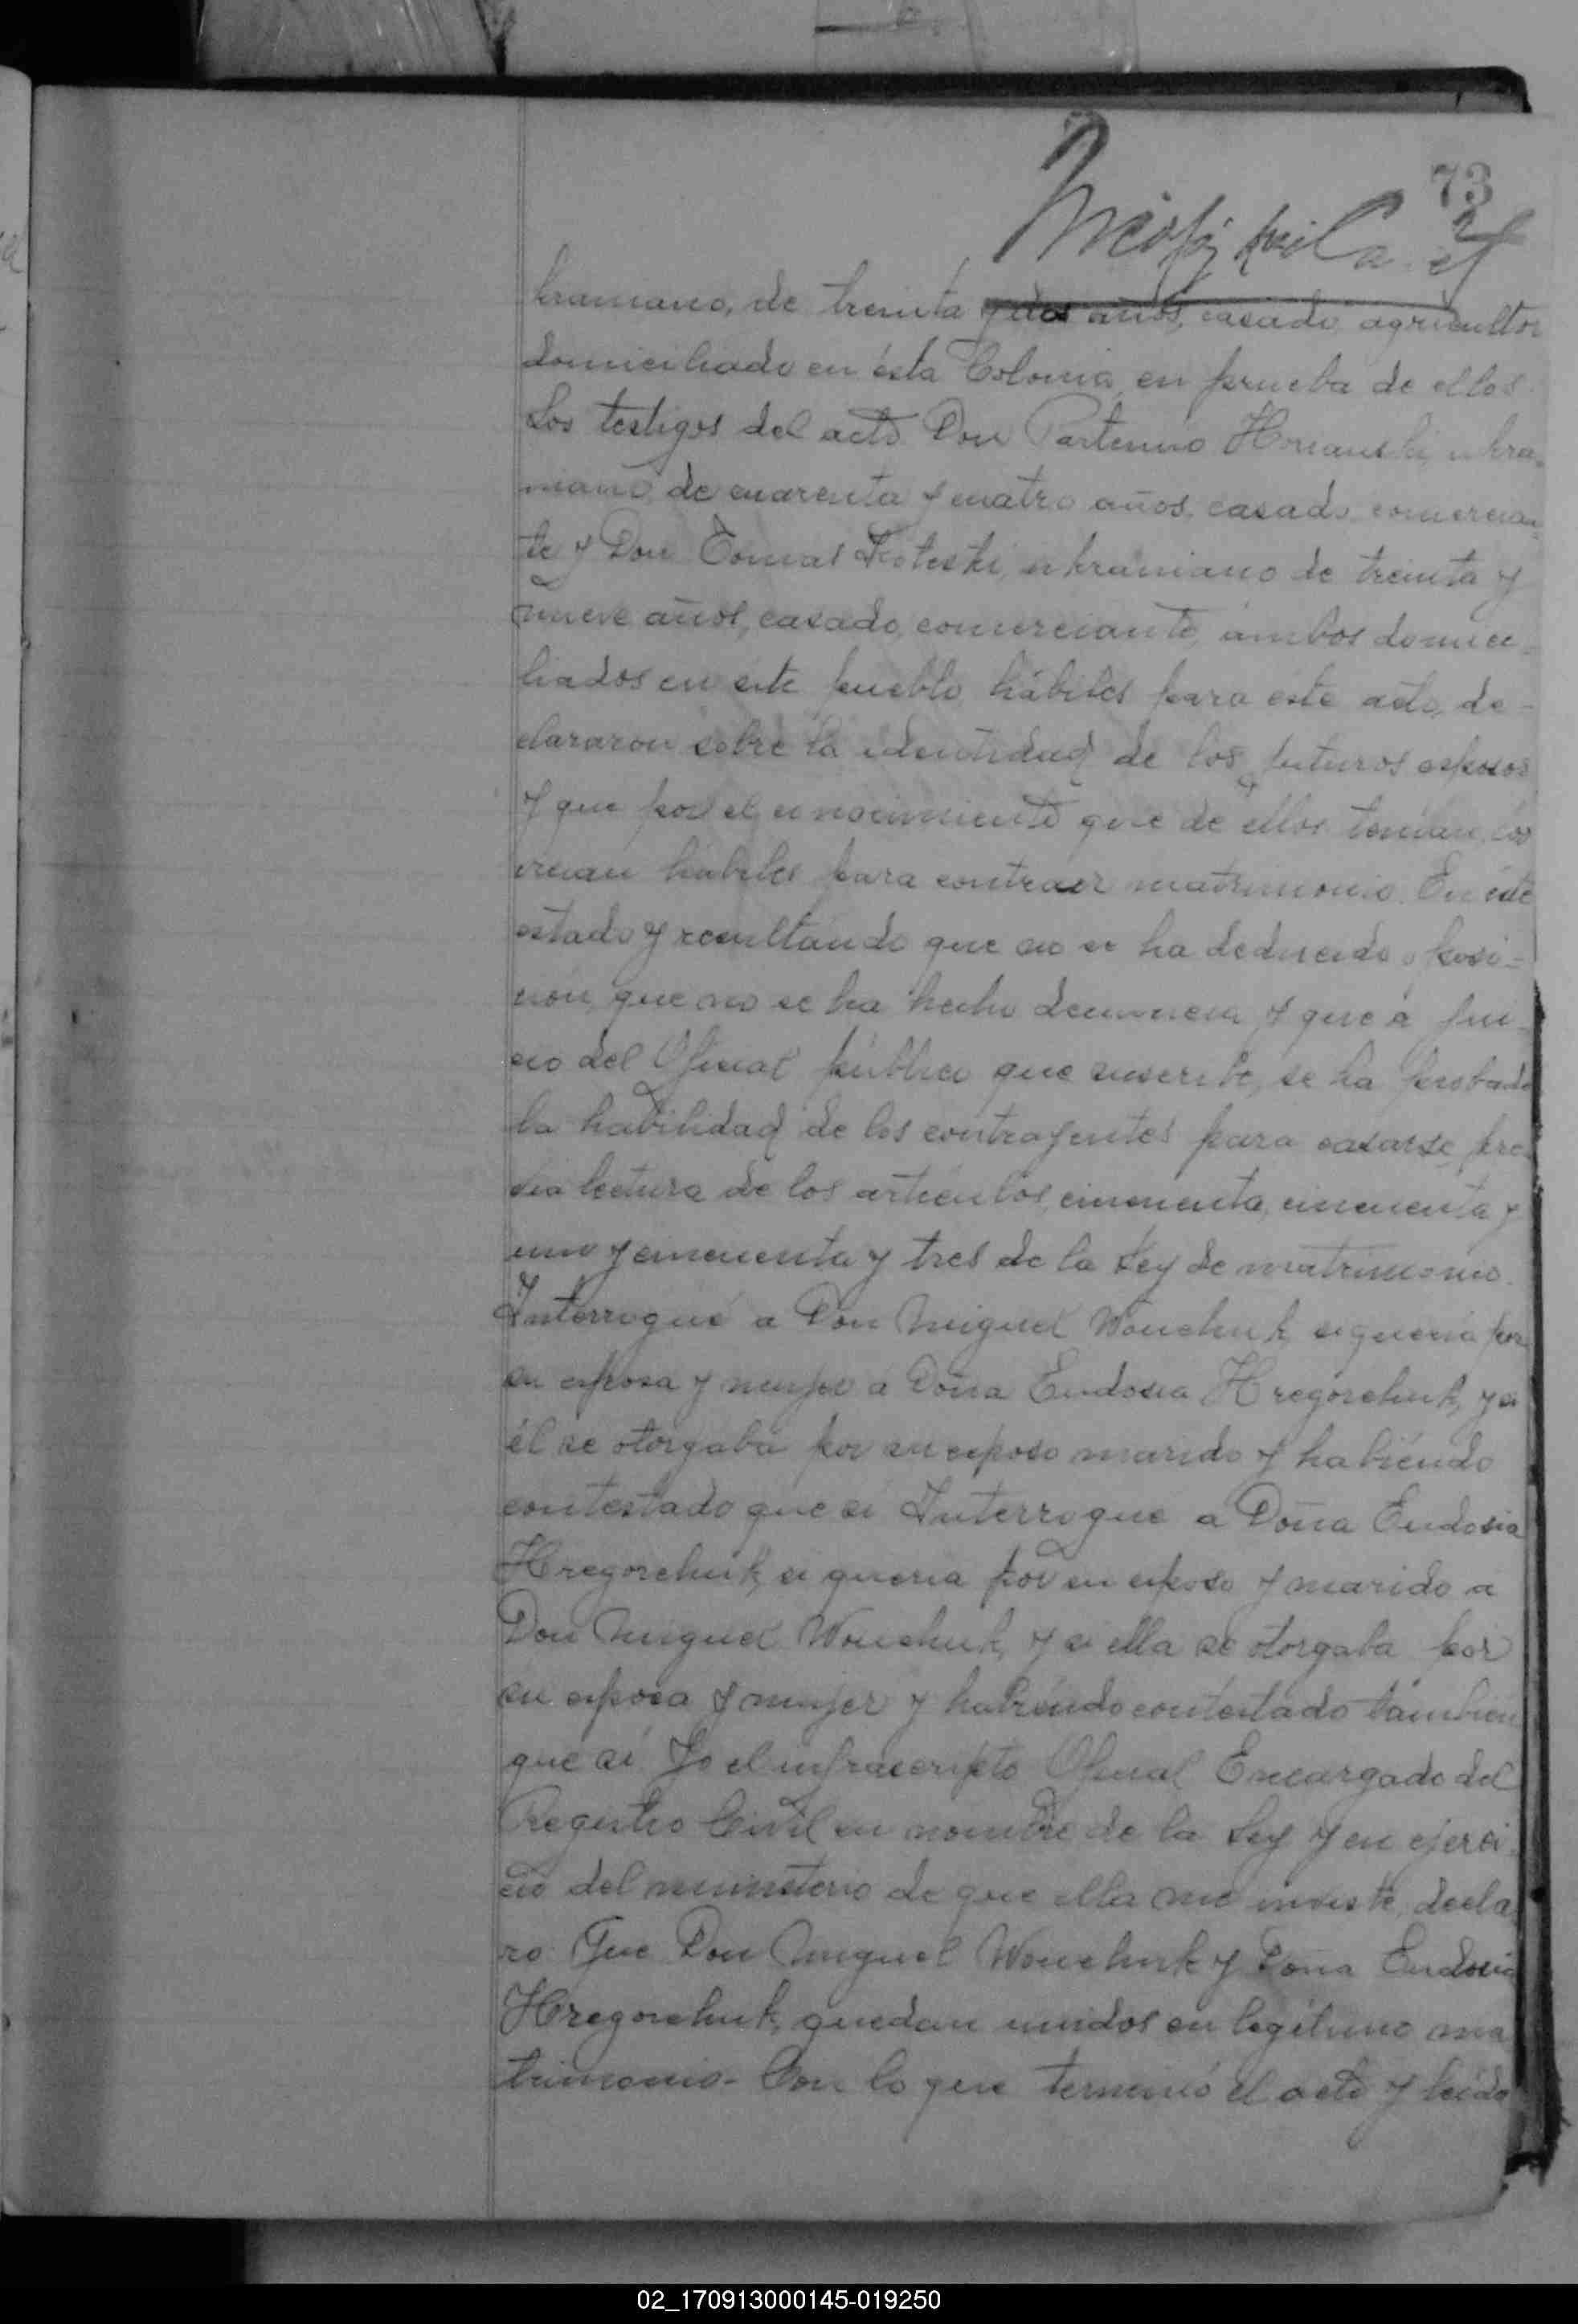 73
kraniano, de treinta y dos años, casado, agricultor
domiciliado en ésta Colonia, en prueba de ellos.
Los testigos del acto Don Partenio ukra-
niano, de cuarenta y cuatro años, casado, comercian-
te y Don Tomas ukraniano de treinta y
nueve años, casado, comerciante, ámbos domici-
liados en este pueblo, hábiles para este acto, de-
clararon sobre la identidad de los futuros esposos
y que por el conocimiento que de ellos tenían, los
creian habiles para contraer matrimonio. En éste
estado y resultando que no se ha deducido oposi-
ción, que no se ha hecho denuncia y que á jui-
cio del Oficial público que suscribe, se ha probado
la habilidad de los contrayentes para casarse, pre-
via lectura de los articulos, cincuenta, cincuenta y
uno y cincuenta y tres de la Ley de matrimonio.
Interrogué a Don Miguel Wouchuk, si quería por
su esposa y mujer á Doña Eudosia Hregorchuk, y si
él se otorgaba por su esposo marido y habiéndo
contestado que sí Interrogue a Doña Eudosia
Hregorchuk, si queria por su esposo y marido a
Don Miguel Wouchuk, y si ella se otorgaba por
su esposa y mujer y habiéndo contestado también
que sí Yo el infrascripto Oficial Encargado del
Registro Civil en nombre de la Ley y en ejerci-
cio del ministerio de que ella me inviste, decla
ro: Que Don Miguel Wouchuk y Doña Eudosia
Hregorchuk, quedan unidos en legítimo ma
trimonio- Con lo que terminó el acto y leída
02_170913000145-019250